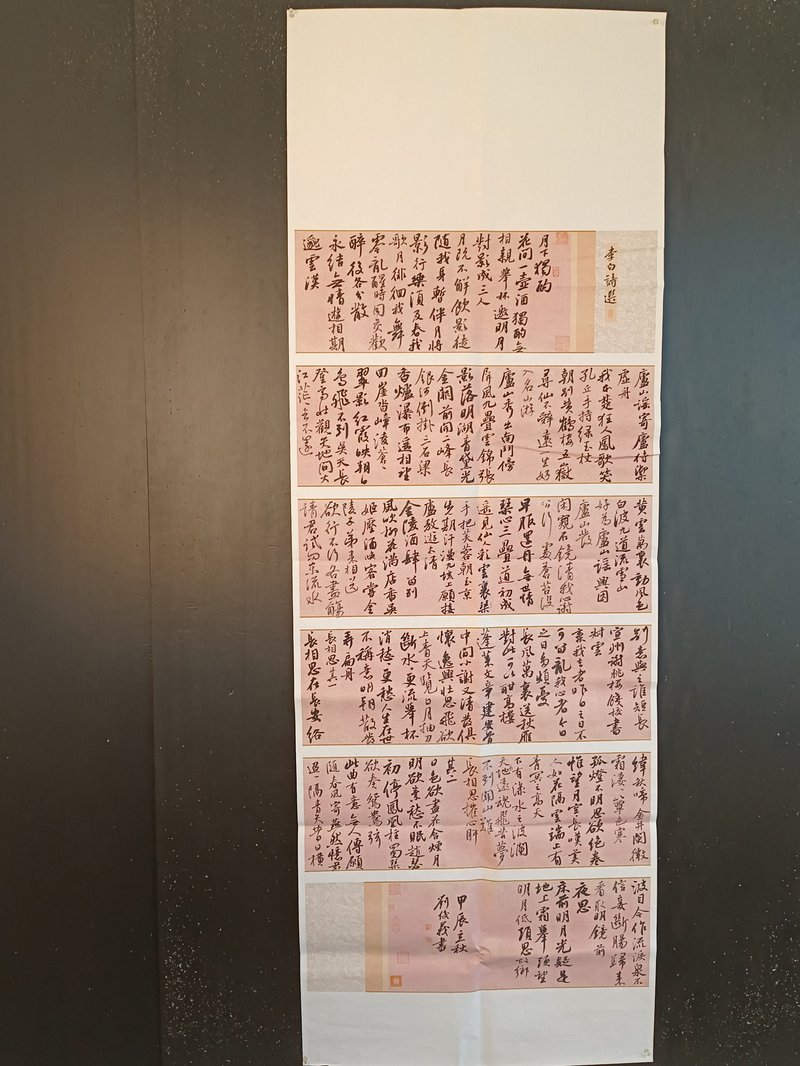 李白詩選
月下獨酌
花間一壺酒獨酌無
相親舉杯邀明月
對影成三人
月既不解飲影徒
隨我身暫伴月將
影行樂須及春我
歌月徘徊我舞
零亂醒時同交歡
醉後各分散
永結無情遊相期
邈雲漢
廬山謠寄盧侍御
虛舟
我本楚狂人鳳歌笑
孔丘手持綠玉杖
朝別黃鶴樓五嶽
尋仙不辭遠一生好
入名山游
廬山秀出南斗傍
屏風九疊雲錦張
影落明湖青黛光
金闕前開二峰長
銀河倒掛三石梁
香爐瀑布遥相望
回崖沓嶂凌蒼蒼
翠影紅霞映朝日
鳥飛不到吳天長
登高壯觀天地間大
江茫茫去不還
黃雲萬裏動風色
白波九道流雪山
好為廬山謠興因
廬山發
閑窺石鏡清我心謝
公行處蒼苔沒
早服還丹無世情
琴心三疊道初成
遥見仙人彩雲裏
手把芙蓉朝玉京
先期汗漫九垓上願接
盧敖遊太清
金陵酒肆留別
風吹柳花滿店香吳
姬壓酒喚客嘗金
陵子弟來相送
欲行不行各盡觴
請君試問東流水
別意與之誰短長
宣州謝朓樓餞校書
叔雲
棄我去者昨日之日不
可留亂我心者今日
之日多煩憂
長風萬裏送秋雁
對此可以酣高樓
蓬萊文章建安骨
中間小謝又清發俱
懷逸興壯思飛欲
上青天覽日月抽刀
斷水水更流舉杯
消愁愁更愁人生在世
不稱意明朝散髮
弄扁舟
長相思其一
長相思在長安絡
緯秋啼金井闌微
霜淒淒簟色寒
孤燈不明思欲絕卷
帷望月空長嘆美
人如花隔雲端上有
青冥之高天
下有淥水之波瀾
天地遠魂飛苦夢
不到關山難
長相思摧心肝
其二
日色欲盡花含煙月
明欲素愁不眠趙瑟
初停鳳凰柱蜀琴
欲奏鴛鴦絃
此曲有意無人傳願
隨春風寄燕然憶君
迢迢隔青天昔日橫
波目今作流淚泉不
信妾斷腸歸來
看取明鏡前
夜思
床前明月光疑是
地上霜舉頭望
明月低頭思故鄉
甲辰立秋
劉俊義書